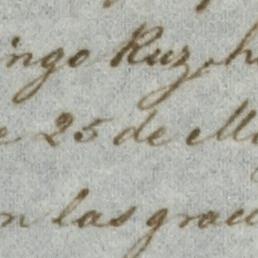 ingo Ruz, h
e 25 de M
n las grac